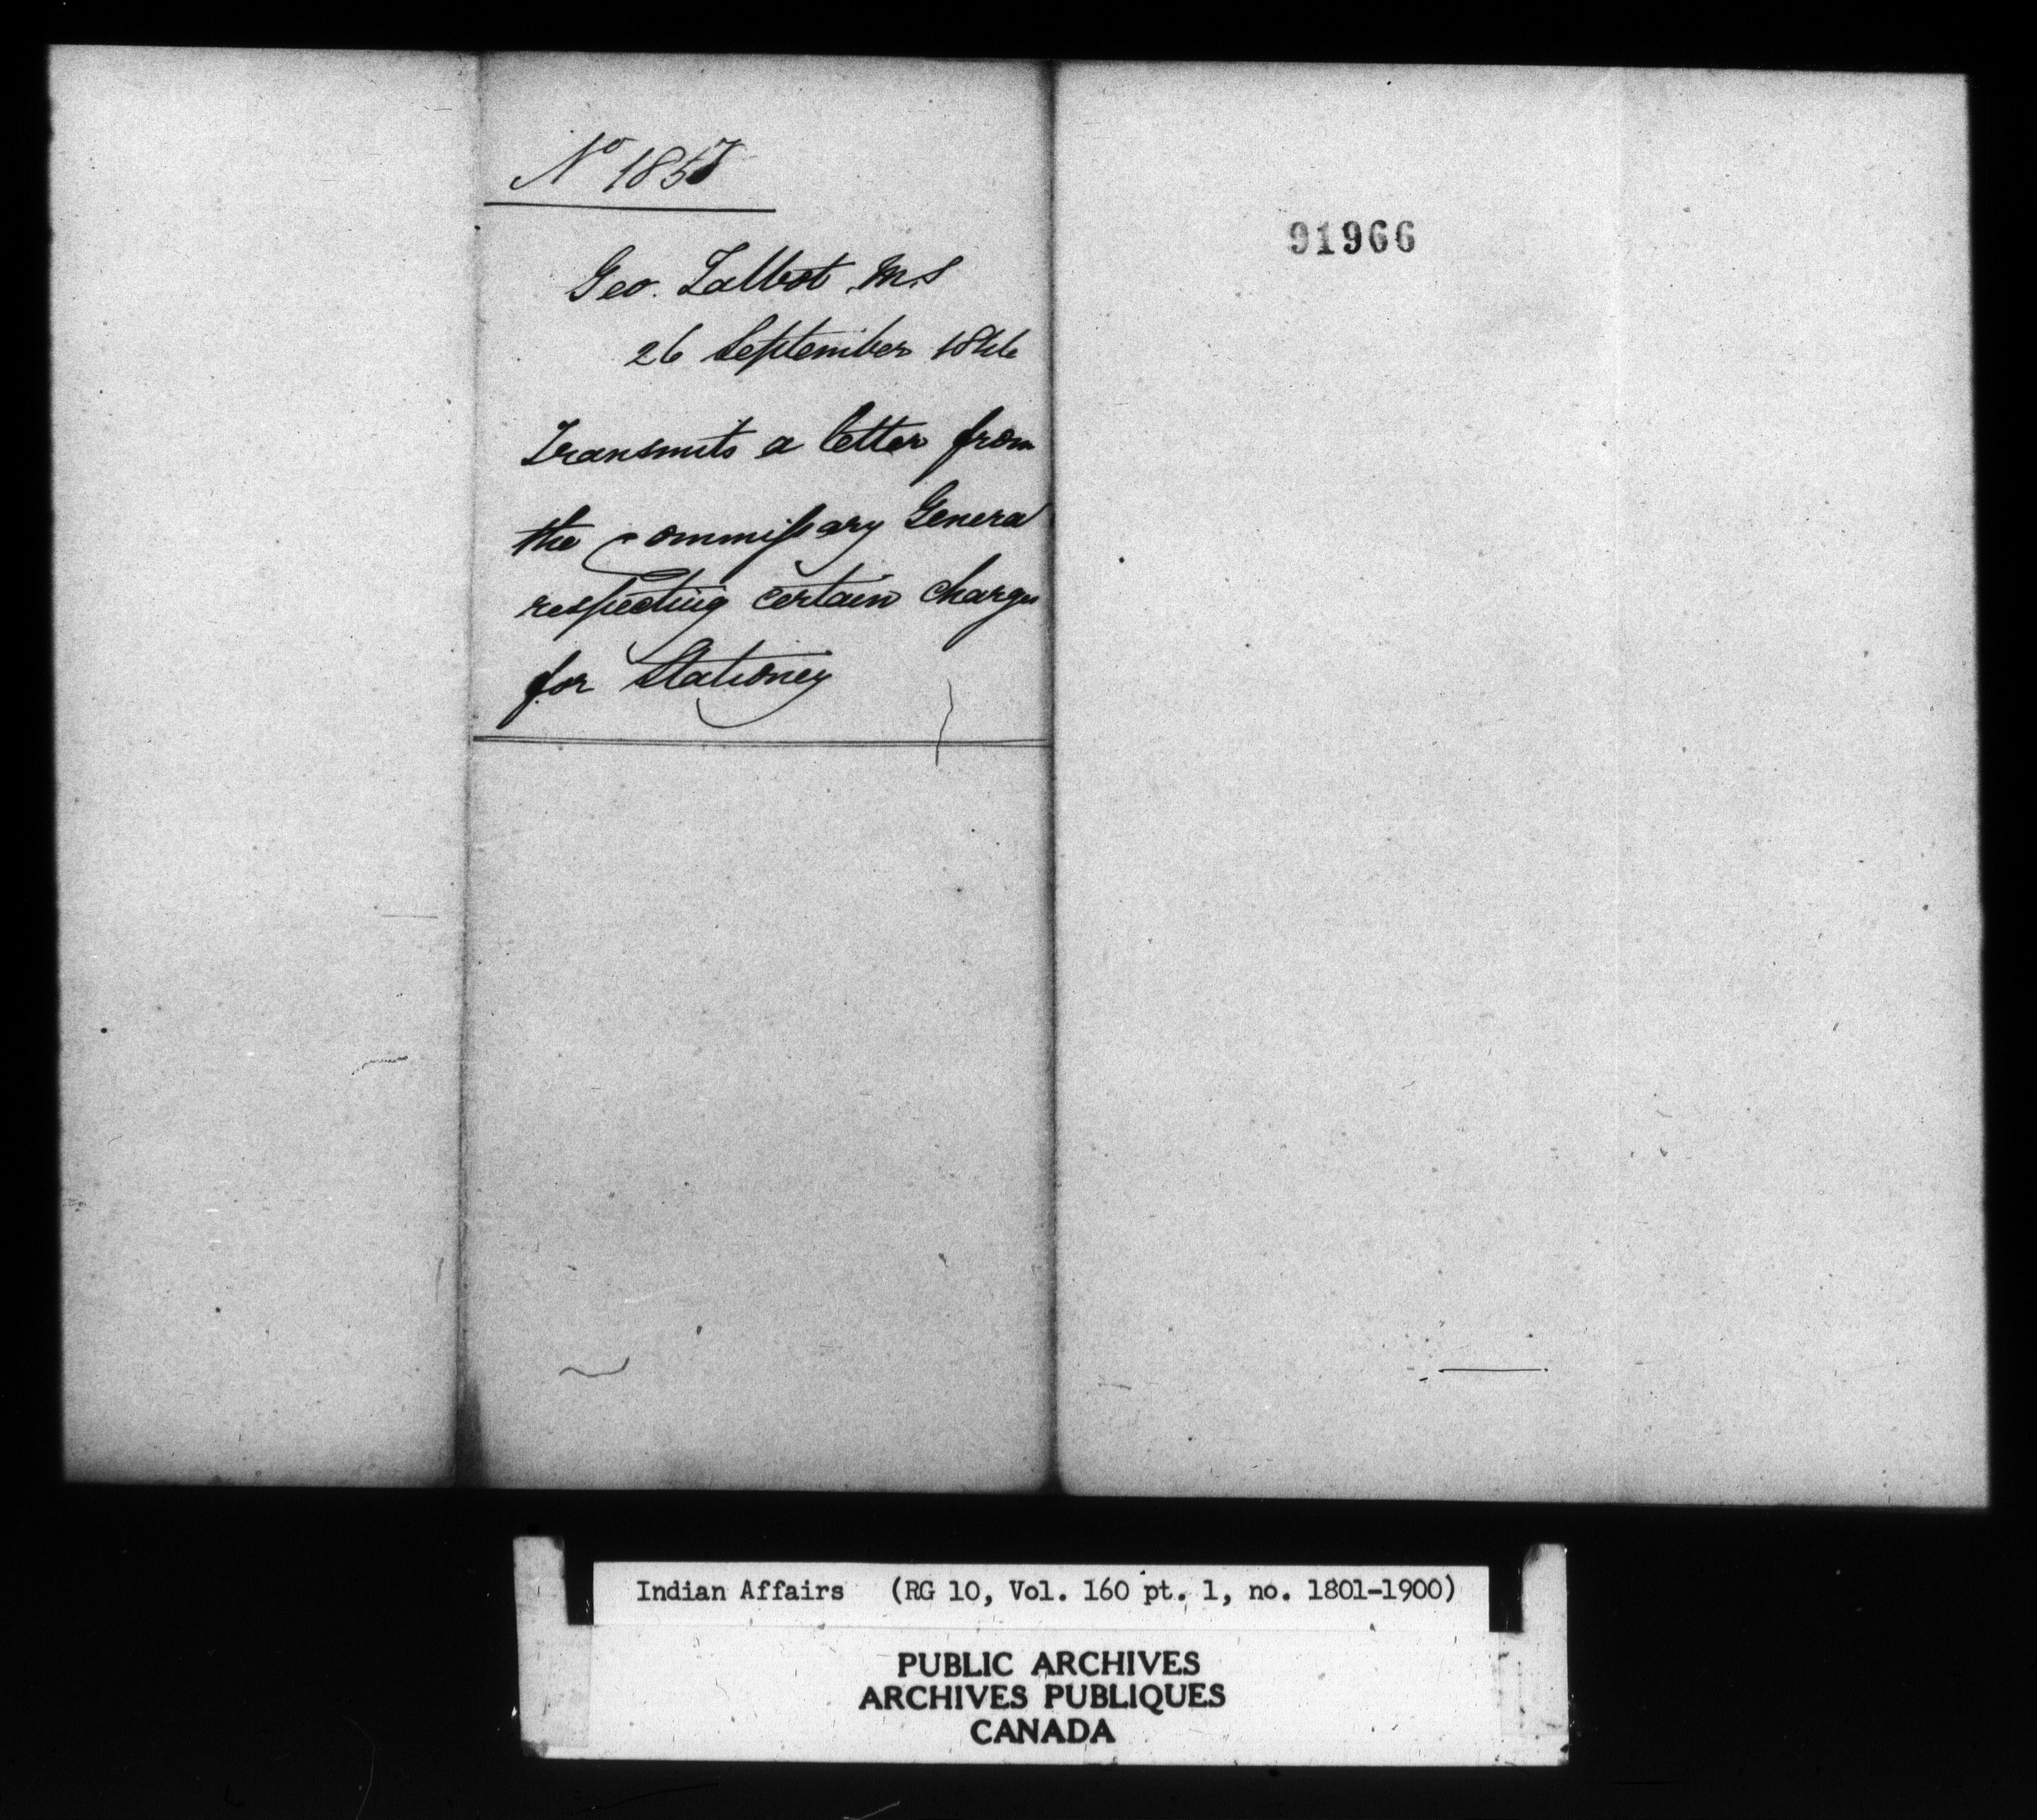 No 1857
Geo. Talbot M.S
26 September 1846
Transmits a letter from
the Commissary General
respecting certain charges
for Stationey
91966
Indian Affairs (RG 10, Vol. 160 pt. 1, no. 1801-1900)
PUBLIC ARCHIVES
ARCHIVES PUBLIQUES
CANADA